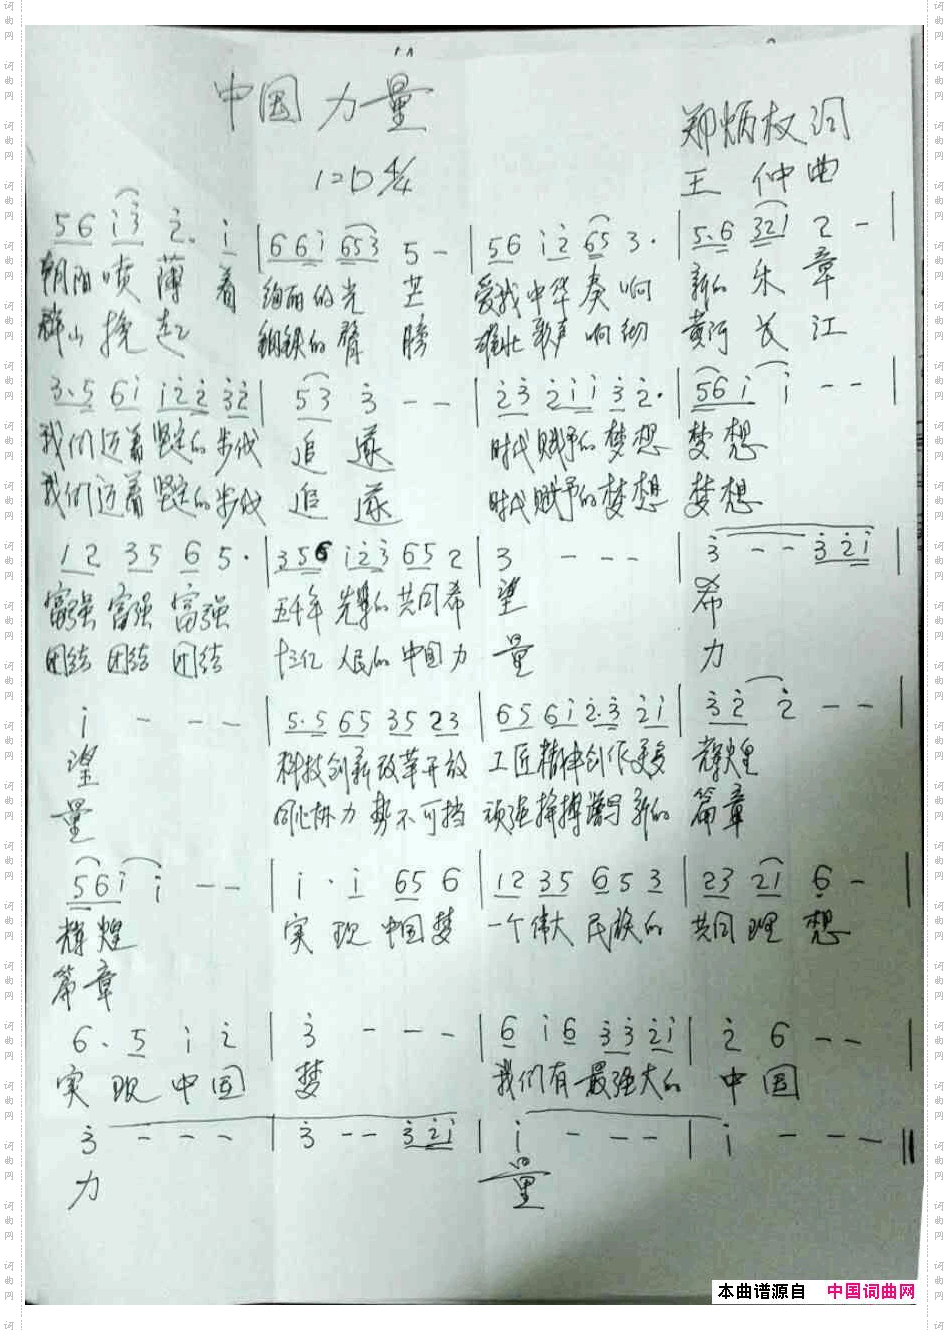 中国力量
1=D 4/4
郑炳权词
王 仲 曲
5 6 i 3 2. i | 6 6 i 6 5 3 5 - | 5 6 i 2 6 5 3 · | 5·6 3 2 1 2 - |
朝阳喷薄着 绚丽的光芒 爱我中华奏响 新的乐章
群山挽起 钢铁的臂膀 雄壮歌声响彻 黄河长江
3·5 6 i i 2 2 3 2 | 5 3 3 - - | 2 3 2 i i 3 2 · | 5 6 i i - - |
我们迈着坚定的步伐 追逐 时代赋予的梦想 梦想
我们迈着坚定的步伐 追逐 时代赋予的梦想 梦想
1 2 3 5 6 5 · | 3 5 6 i 2 3 6 5 2 | 3 - - - | 3 - - 3 2 i |
富强 富强 富强 五千年 先辈的 共同希 望 希
团结 团结 团结 十三亿 人民的 中国力 量 力
i - - - | 5·5 6 5 3 5 2 3 | 6 5 6 i 2·3 2 i | 3 2 2 - - |
望 科技创新改革开放 工匠精神创作更多 辉煌
量 同心协力势不可挡 顽强拼搏谱写新的 篇章
5 6 i i - - | i · i 6 5 6 | 1 2 3 5 6 5 3 | 2 3 2 1 6 - |
辉煌 实现中国梦 一个伟大民族的 共同理想
篇章
6 · 5 i 2 | 3 - - - | 6 i 6 3 3 2 i | 2 6 - - |
实现中国 梦 我们有最强大的 中国
3 - - - | 3 - - 3 2 i | i - - - | i - - - ||
力 量
本曲谱源自 中国词曲网